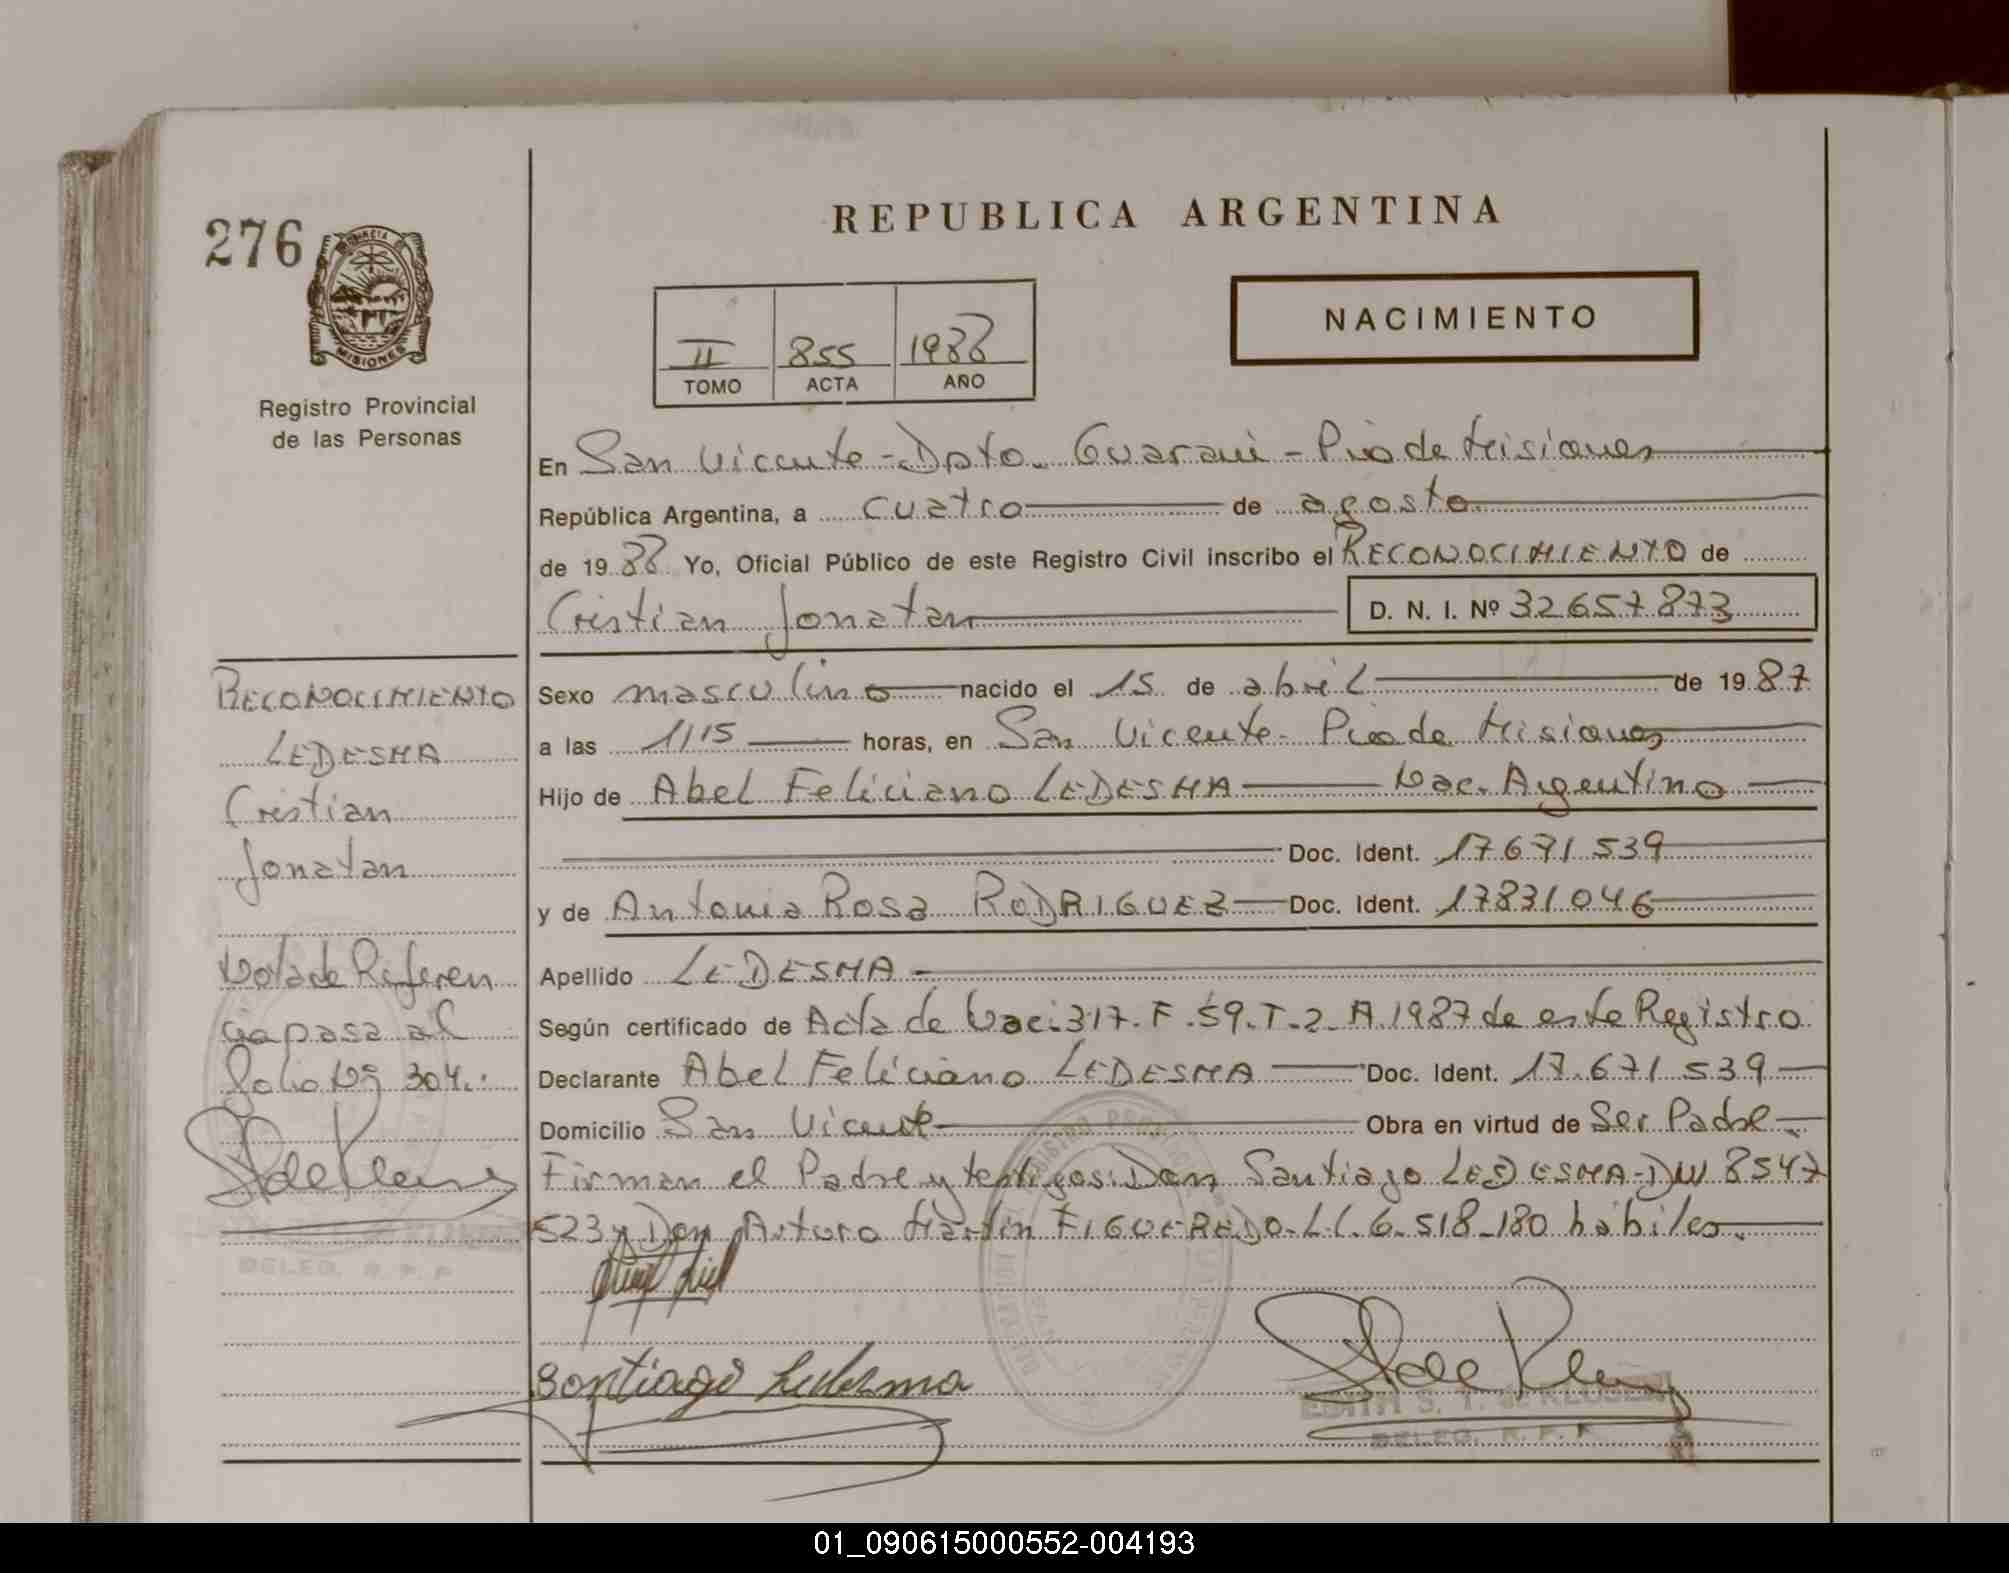 276
REPUBLICA ARGENTINA
NACIMIENTO
II 855 1988
TOMO ACTA AÑO
MISIONES
Registro Provincial
de las Personas
En San Vicente - Dpto. Guaraní - Pcia de Misiones
República Argentina, a cuatro de agosto
de 1988 Yo, Oficial Público de este Registro Civil inscribo el RECONOCIMIENTO de
Cristian Jonatan D. N. I. Nº 32657873
Sexo masculino nacido el 15 de abril de 1987
a las 1115 horas, en San Vicente - Pcia de Misiones
Hijo de Abel Feliciano LEDESMA Nac. Argentino
Doc. Ident. 17671539
y de Antonia Rosa RODRIGUEZ Doc. Ident. 17831046
Apellido LEDESMA
Según certificado de Acta de Nac. 317. F. 59. T. 2. A. 1987 de este Registro
Declarante Abel Feliciano LEDESMA Doc. Ident. 17.671539
Domicilio San Vicente Obra en virtud de Ser Padre
Firman el Padre y testigos: Don Santiago LEDESMA - DNI 8547
523 y Don Arturo Martín FIGUEREDO - L.C. 6.518.180 hábiles.
Santiago Ledesma
EDITH S. T. de KLUSEN
DELEG. R. P. P.
RECONOCIMIENTO
LEDESMA
Cristian
Jonatan
Nota de Referen
cia pasa al
folio Nº 304.
DELEG. R. P. P.
01_090615000552-004193